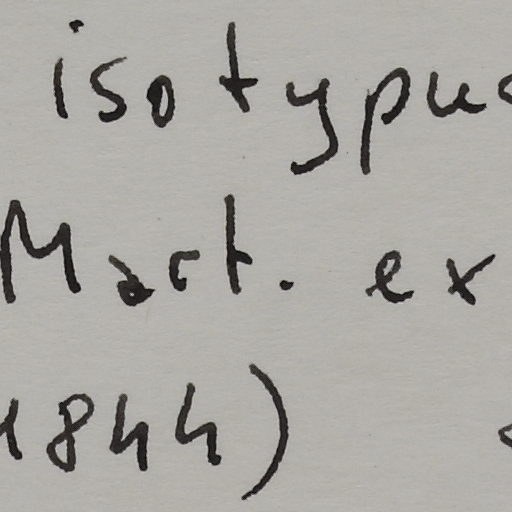 isotypus
Mart. ex
1844)